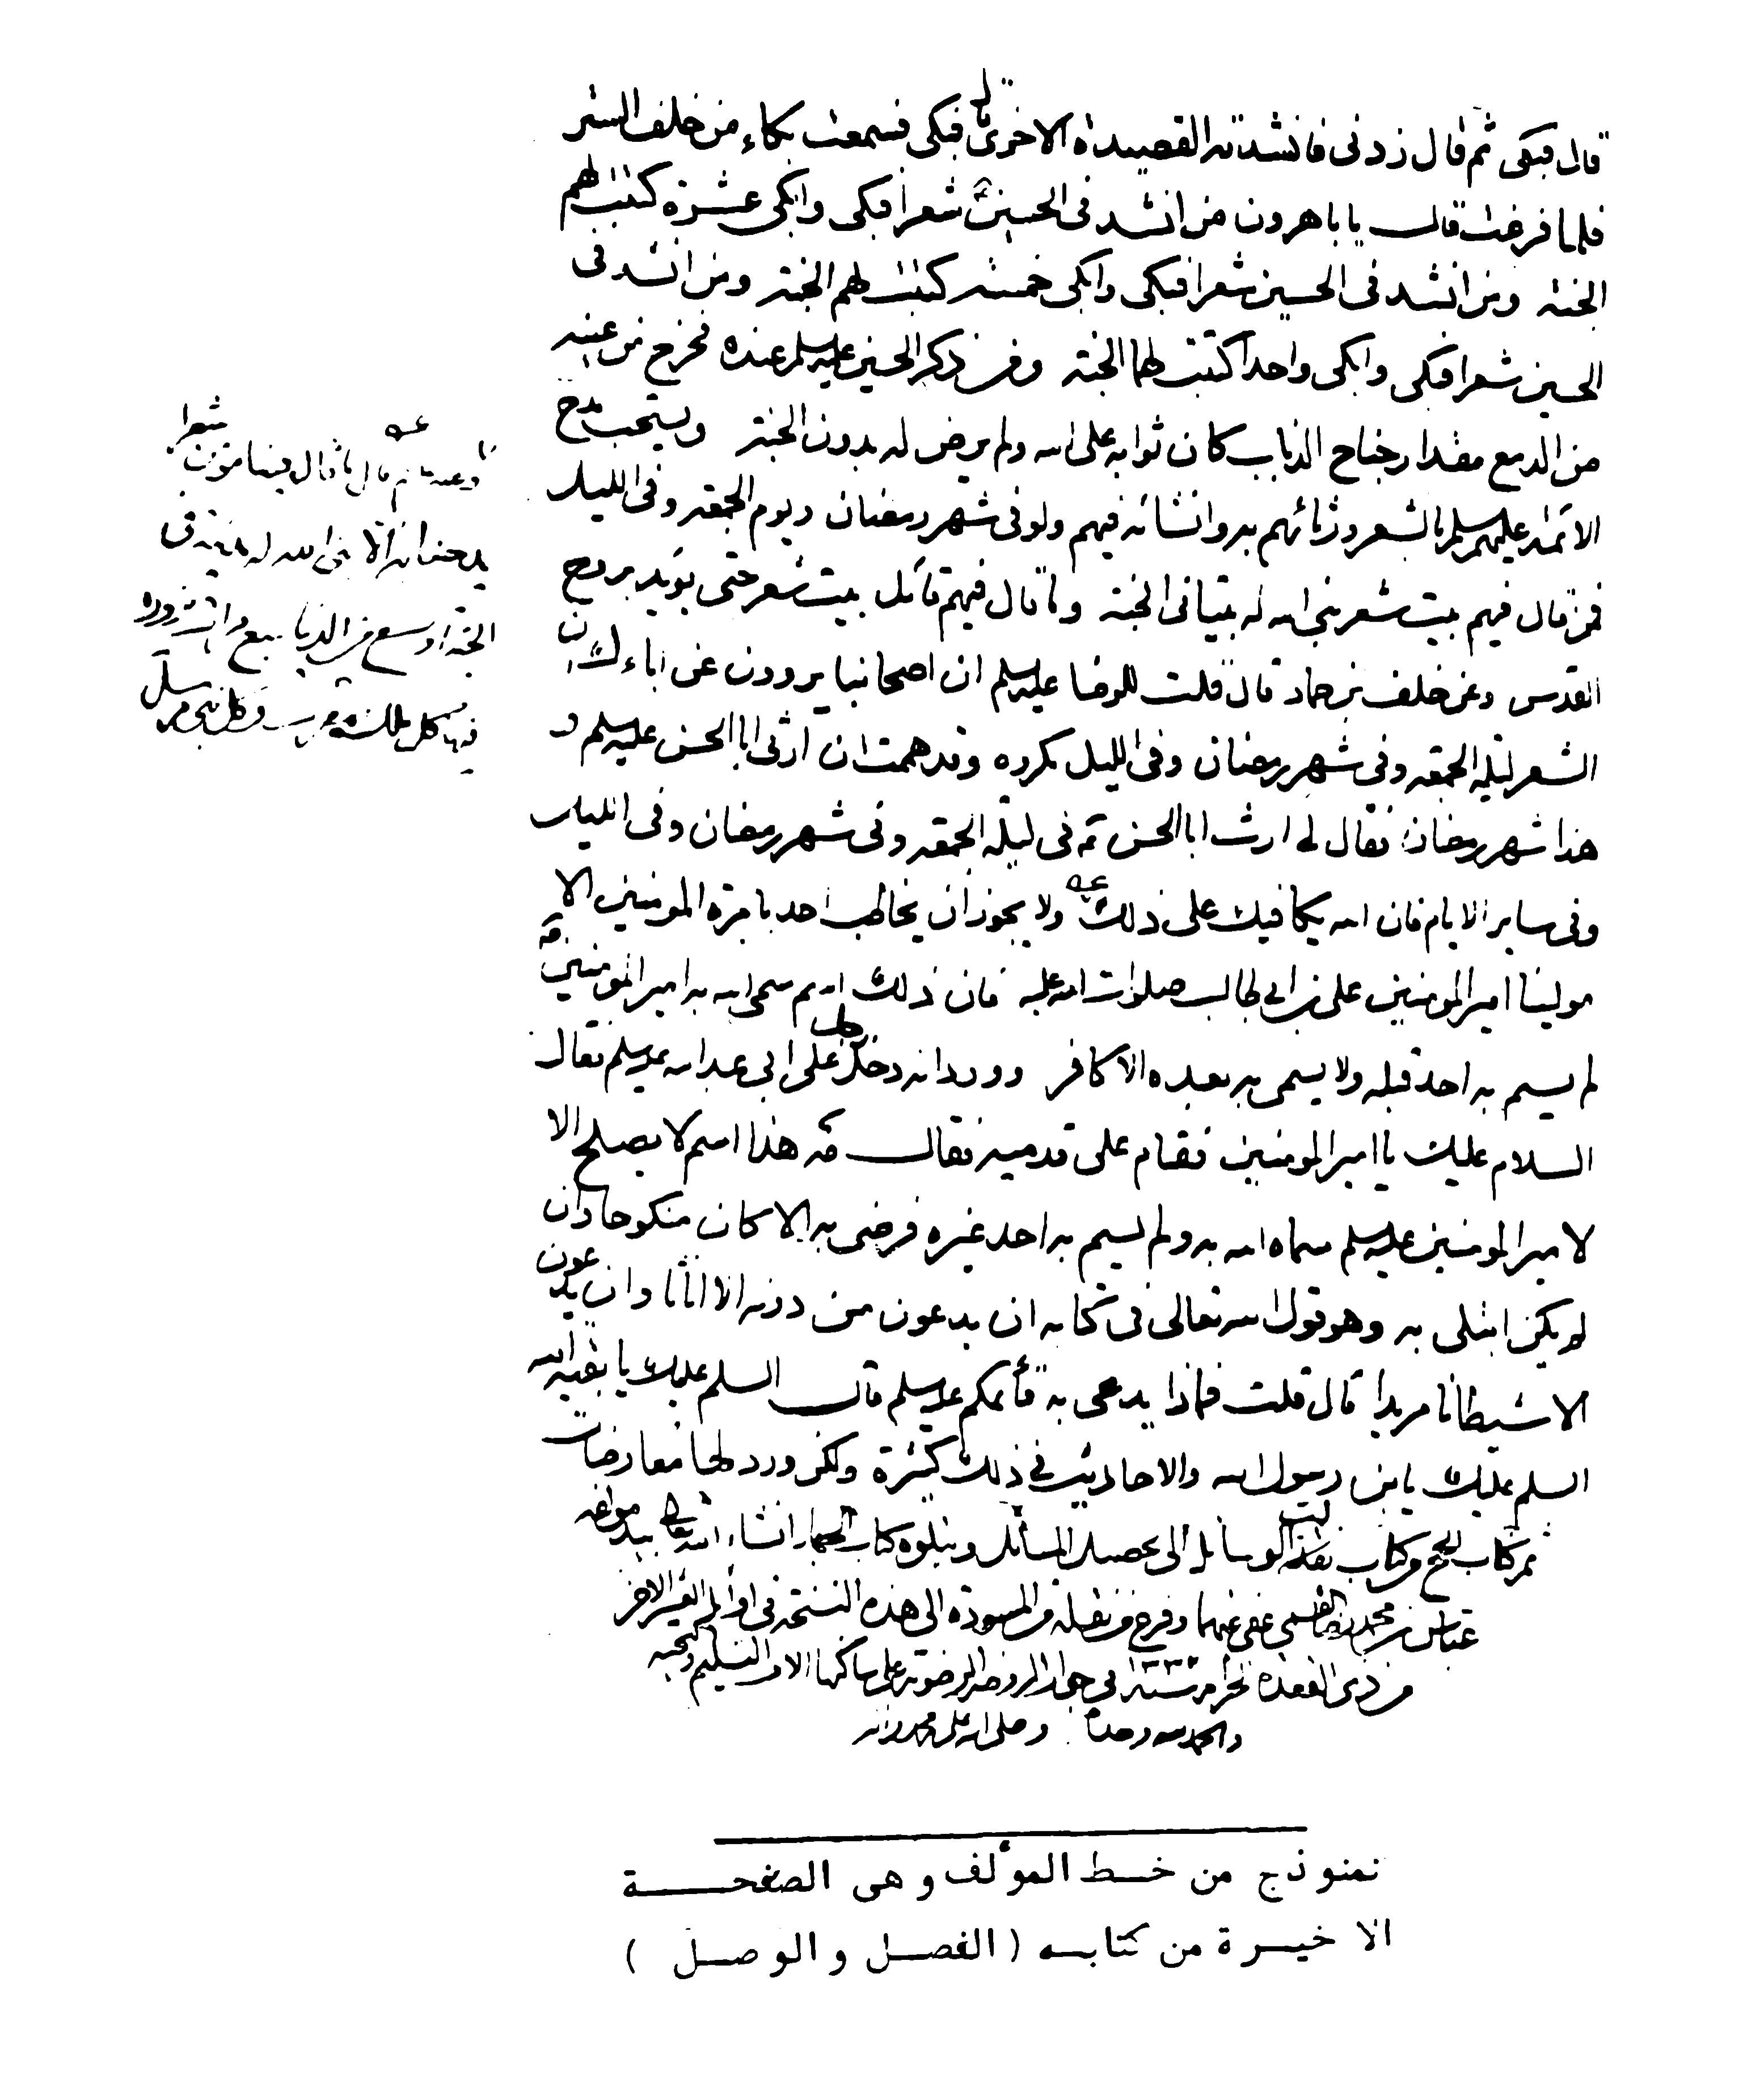 قال فبكى ثم قال زدنى فانشدته القصيدة الاخرى قال فبكى فسمعت بكاء من خلف الستر
فلما فرغت قال يا باهرون من انشد فى الحسين ع شعرا فبكى وابكى عشرة كتبت لهم
الجنة ومن انشد فى الحسين شعرا فبكى وابكى خمسة كتبت لهم الجنة ومن انشد فى
الحسين شعرا فبكى وابكى واحدا كتبت لهما الجنة ومن ذكر الحسين عليه السلم عنده فخرج من عينيه
من الدمع مقدار جناح الذباب كان ثوابه على الله ولم يرض له بدون الجنة ويستحب مدح
الائمة عليهم السلم بالشعر ورثائهم به وانشائه فيهم ولو فى شهر رمضان ويوم الجمعة وفى الليل
فمن قال فيهم بيت شعر بنى الله له بيتا فى الجنة وما قال فيهم قائل بيت شعر حتى يؤيد بروح
القدس وعن خلف بن حماد قال قلت للرضا عليه السلم ان اصحابنا يروون عن اباءك ان
الشعر ليلة الجمعة وفى شهر رمضان وفى الليل مكروه وقد هممت ان ارثى ابا الحسن عليه السلم و
هذا شهر رمضان فقال لى ارث ابا الحسن ع فى ليلة الجمعة وفى شهر رمضان وفى الليل
وفى ساير الايام فان الله يكافيك على ذلك ولا يجوز ان يخاطب احد بامرة المومنين الا
مولينا امير المومنين على بن ابى طالب صلوات الله عليه فان ذلك اسم سمى الله به امير المومنين ع
لم يسم به احد قبله ولا يسمى به بعده الا كافر وورد انه دخل رجل على ابى عبد الله عليه السلم فقال
السلام عليك يا امير المومنين فقام على قدميه فقال مه هذا اسم لا يصلح الا
لامير المومنين عليه السلم سماه الله به ولم يسم به احد غيره فرضى به الا كان منكوحا وان
لم يكن ابتلى به وهو قول الله تعالى فى كتابه ان يدعون من دونه الا اناثا وان يدعون
الا شيطانا مريدا قال قلت فماذا يدعى به قائمكم عليه السلم قال السلم عليك يا بقية الله
السلم عليك يابن رسول الله والاحاديث فى ذلك كثيرة ولكن ورد لها معارضات
تم كتاب الحج من كتاب الوسائل الى تحصيل المسائل ويتلوه كتاب الجهاد انشاء الله تعالى بيد مولفه
عباس بن محمد رضا القمى عفى عنهما وفرغ من نقله من المسودة الى هذه النسخة فى اوائل العشر الاخر
من ذى القعدة الحرام سنة فى جوار الروضة الرضوية على ساكنها الاف التسليم والتحية
والحمد لله وحده وصلى الله على محمد واله
شعرا
وعنه ع قال ما قال فينا مؤمن
يمدحنا به الا بنى الله له مدينة فى
الجنة اوسع من الدنيا سبع مرات يزوره
فيها كل ملك مقرب وكل نبى مرسل
نمنوذج من خط المؤلف وهى الصفحة
الاخيرة من كتابه (الفصل والوصل)